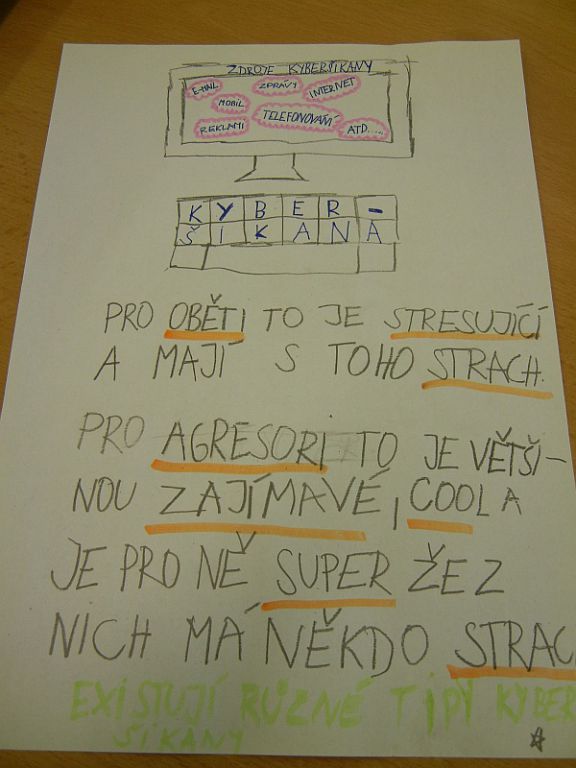 ZDROJE KYBERŠIKANY
E-MAIL ZPRÁVY INTERNET
MOBIL
REKLAMI TELEFONOVÁNÍ ATD.....
KYBER-
ŠIKANA
PRO OBĚTI TO JE STRESUJÍCÍ
A MAJÍ S TOHO STRACH.
PRO AGRESORI TO JE VĚTŠI-
NOU ZAJÍMAVÉ, COOL A
JE PRO NĚ SUPER ŽE Z
NICH MÁ NĚKDO STRAC
EXISTUJÍ RŮZNÉ TIPY KYBER
ŠIKANY